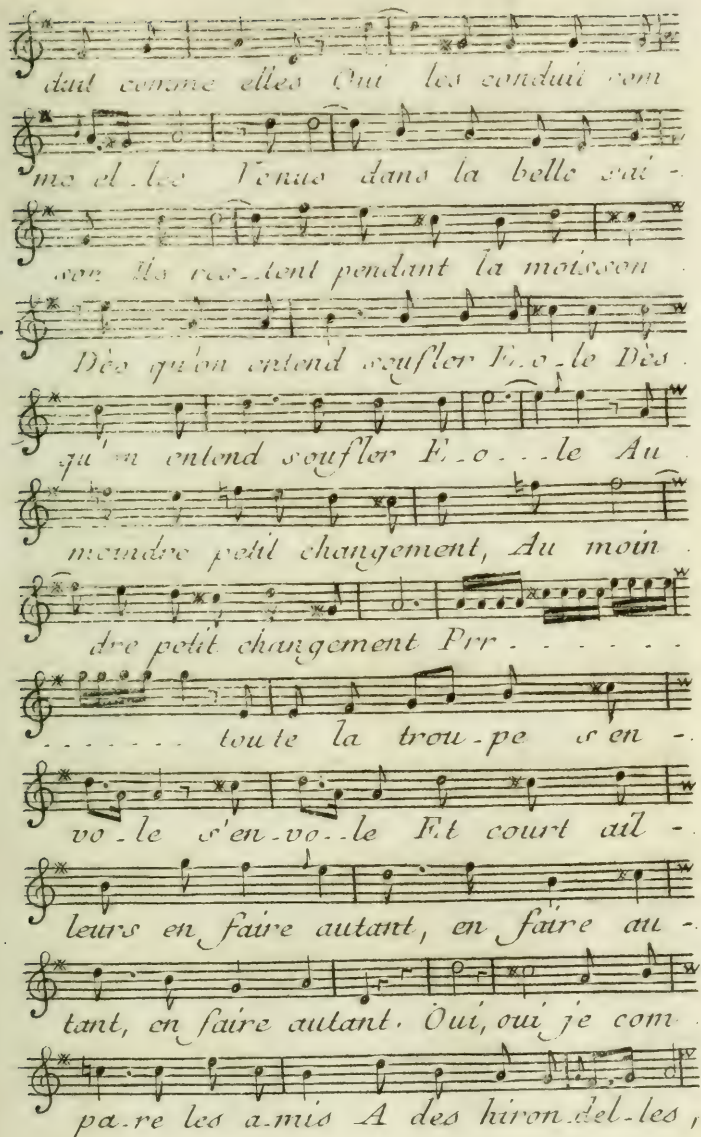 duit comme elles Oui les conduit com
me el_les Venus dans la belle sai -
son Ils res_tent pendant la moisson
Dès qu'on entend soufler E_o_le Dès
qu'on entend soufler E_o__le Au
moindre petit changement, Au moin
dre petit changement Prr . . . . . . .
. . . . . . . toute la trou_pe s'en -
vo_le s'en_vo__le Et court ail -
leurs en faire autant, en faire au -
tant, en faire autant. Oui, oui je com
pa_re les a_mis A des hiron_del_les,